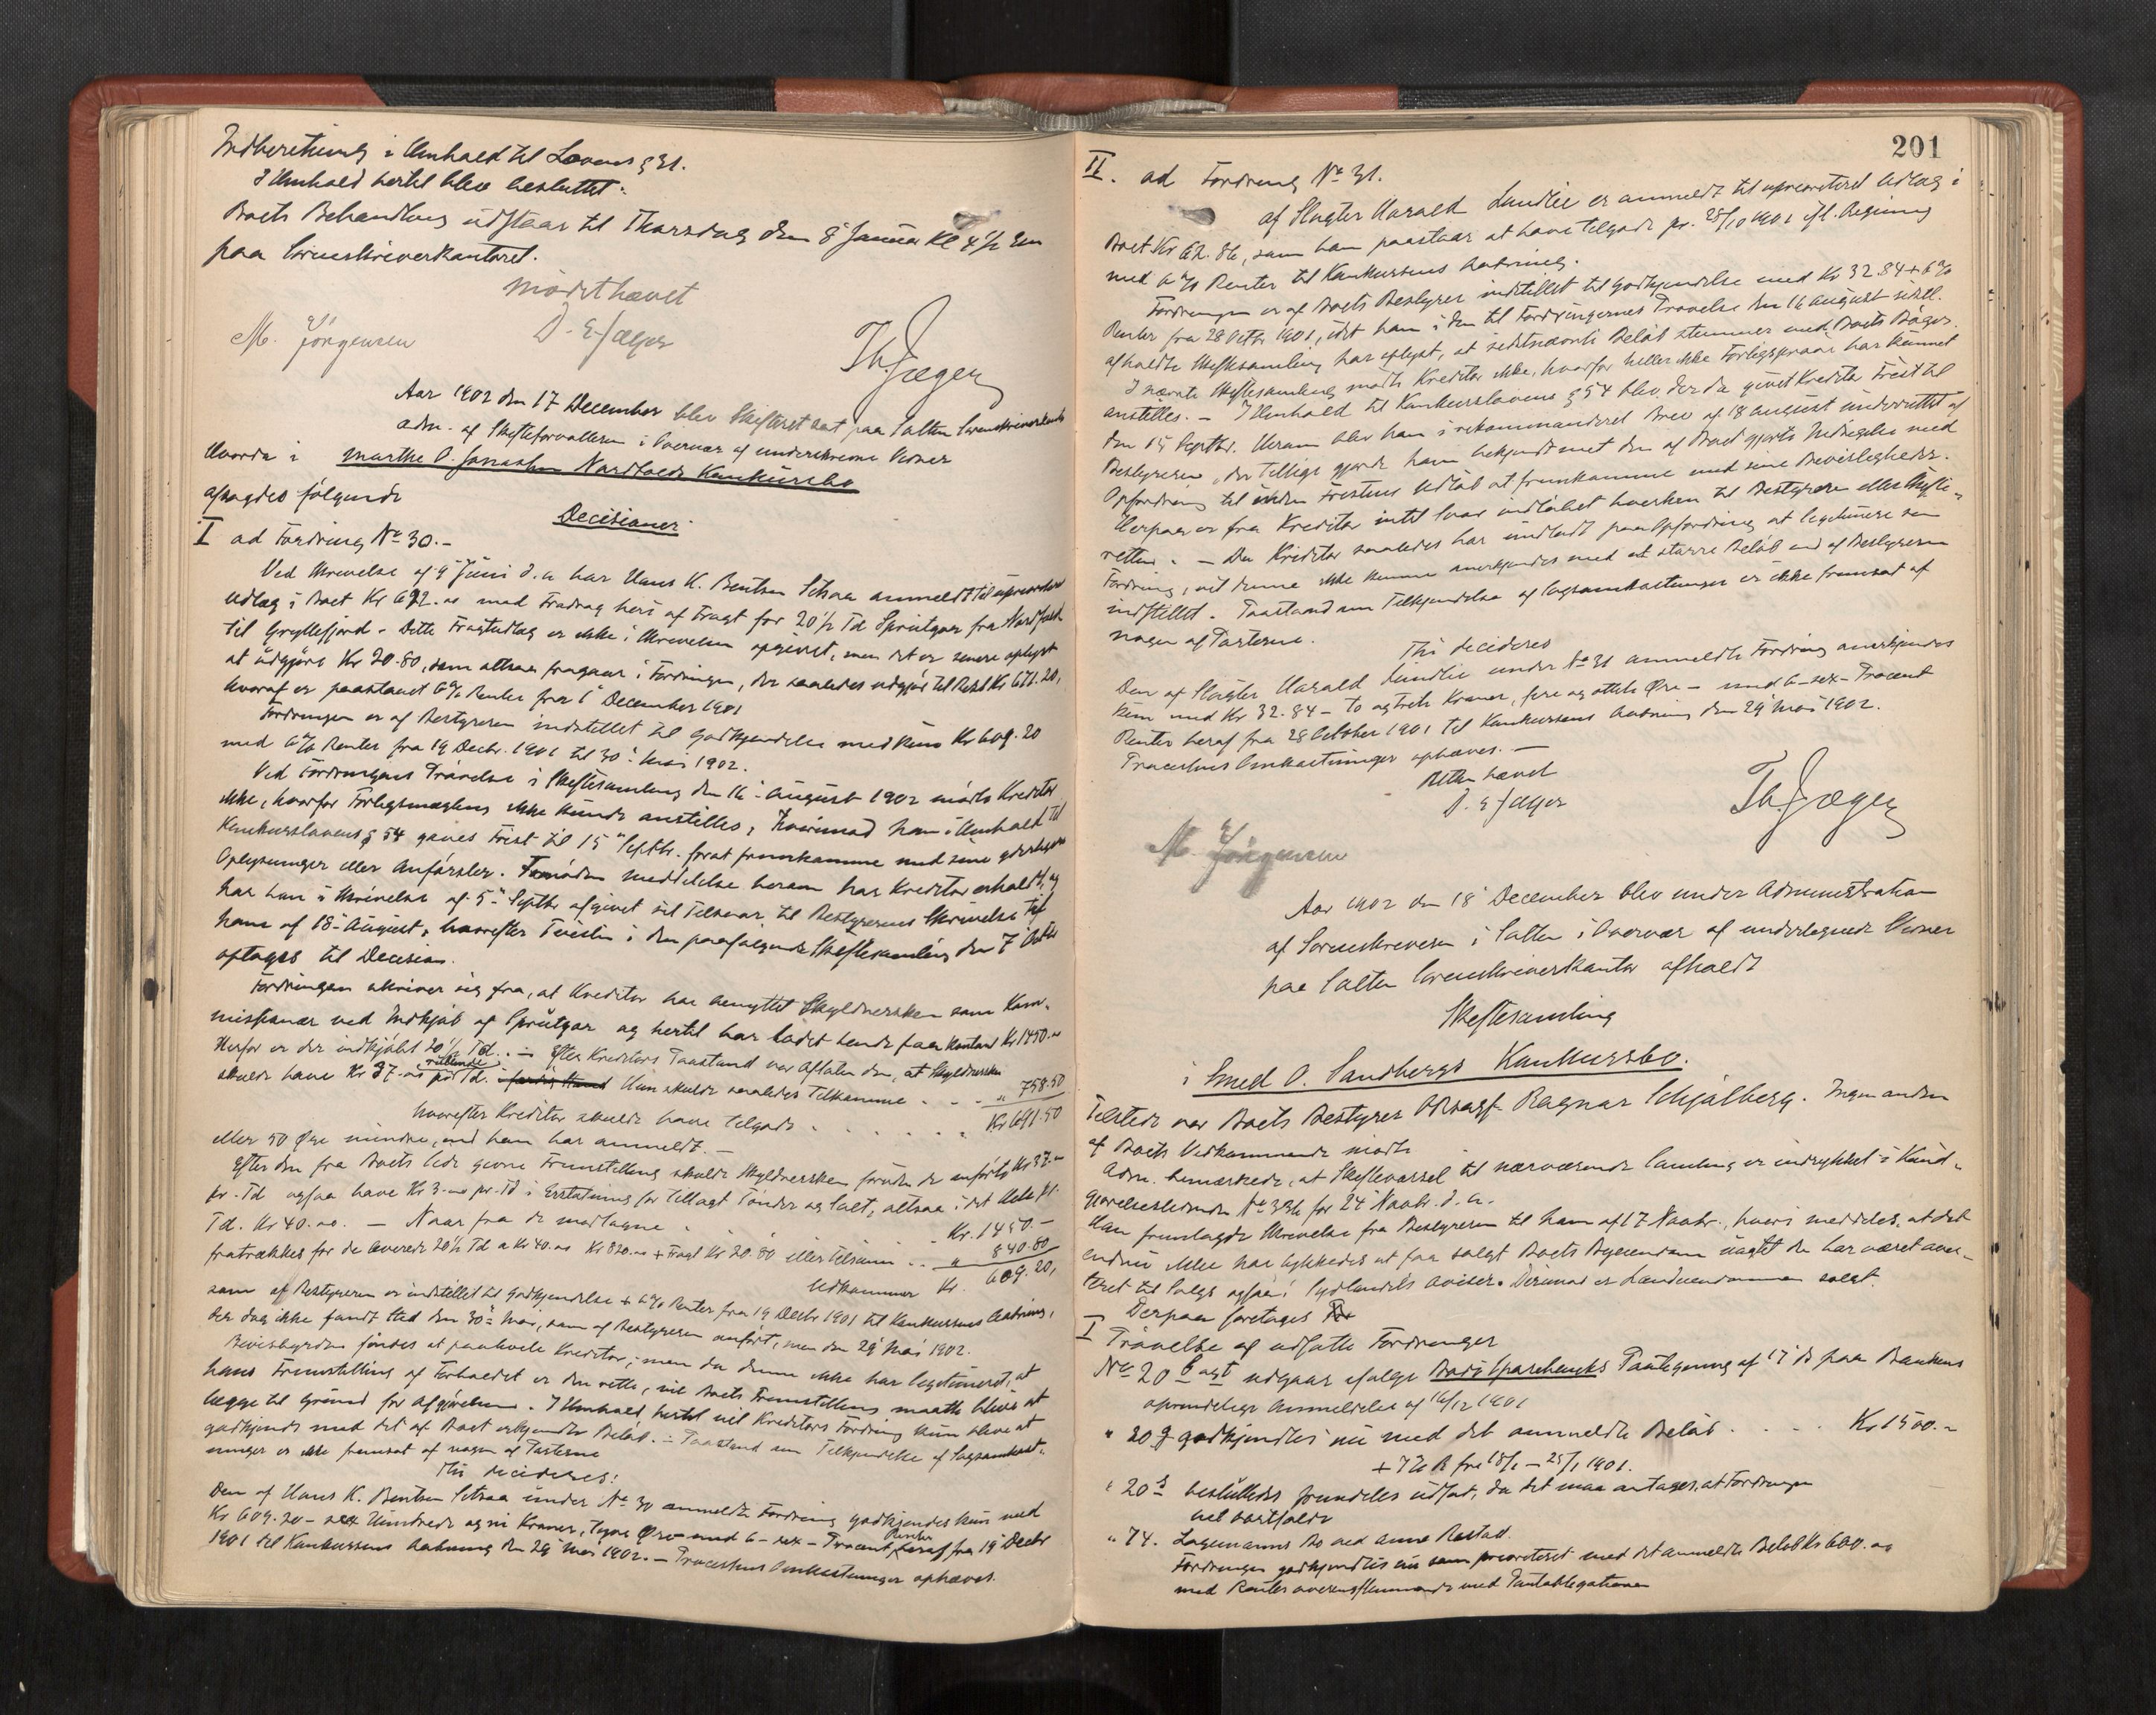 Indberetning i Henhold til Lovens § 31.
I Henhold hertil blev besluttet:
Boets Behandling udstaar til Thorsdag den 8 Januar Kl 4½ Em
paa Sorenskriverkontoret.
Mødet hævet
M. Jörgensen D. E Jæger Th Jæger
Aar 1902 den 17 December blev Skifteret sat paa Salten Sorenskriverkontor
adm. af Skifteforvalteren i Overvær af underskrevne Vidner
Hvorda i Marthe O. Jonassen Nordfolds Konkursbo
afsagdes følgende
Decisioner
I ad Fordring No 30.-
Ved Skrivelse af 9 Juni d.a. har Hans K. Bentsen Sitsaa anmeldt til uprioriteret
Udlæg i Boet Kr 692.00 med Fradrag heri af Fragt for 20½ Td Sprutgar fra Nordfold
til Gryllefjord. Dette Fragtudlæg er ikke i Skrivelsen opgivet, men det er senere oplyst
at udgjøre Kr 20.80, som altsaa fragaar i Fordringen, der saaledes udgjør til Rest Kr 671.20,
hvoraf er paastaaet 6% Renter fra 1 December 1901
Fordringen er af Bestyreren indstillet til Godkjendelse med kun Kr 609.20
med 6% Renter fra 19 Decbr. 1901 til 30 Mai 1902.
Ved Fordringens Prøvelse i Skiftesamling den 16 August 1902 mødte Kreditor
ikke, hvorfor Forligsmægling ikke kunde anstilles, hvorimod ham i Henhold til
Konkurslovens § 54 gaves Frist til 15 Septbr. forat fremkomme med sine yderligere
Oplysninger eller Anførsler. Fornøden Meddelelse herom har Kreditor erholdt, og
har han i Skrivelse af 5 Septbr afgivet sit Tilsvar til Bestyrerens Skrivelse til
ham af 18 August, hvorefter Tvisten i den paafølgende Skiftesamling den 7 Octbr
optoges til Decision.
Fordringen skriver sig fra, at Kreditor har benyttet Skyldnersken som Kom-
missionær ved Indkjøb af Sprutgar og hertil har ladet hende faa Kontant Kr 1450.00
Herfor er der indkjøbt 20½ Td. Efter Kreditors Paastand var Aftalen den, at Skyldnersken
skulde have Kr 37.00 pr Td. Hun skulde saaledes Tilkomme . . . " 758.50
hvorefter Kreditor skulde have tilgode . . . . . . Kr 691.50
eller 50 Øre mindre, end han har anmeldt.-
Efter den fra Boets Side givne Fremstilling skulde Skyldnersken foruden de anførte Kr 37.00
pr. Td ogsaa have Kr 3.00 pr. Td i Erstatning for tillagt Tønder og Salt, altsaa i det Hele pr.
Td. Kr 40.00. - Naar fra de modtagne . . Kr. 1450.-
fratrækkes for de leverede 20½ Td a Kr 40.00 Kr 820.00 + Fragt Kr 20.80 eller tilsammen . . " 840.80
Udkommer Kr. 609.20,
som af Bestyreren er indstillet til Godkjendelse + 6% Renter fra 19 Decbr 1901 til Konkursens Aabning,
der dog ikke fandt Sted den 30 Mai, som af Bestyreren anført, men den 29 Mai 1902.
Bevisbyrden findes at paahvile Kreditor; men da denne ikke har legitimeret, at
hans Fremstilling af Forholdet er den rette, vil Boets Fremstilling maatte blive at
lægge til Grund for Afgjørelsen. I Henhold hertil vil Kreditors Fordring kun blive at
godkjende med det af Boet erkjendte Beløb. - Paastand om Tilkjendelse af Sagsomkost-
ninger er ikke fremsat af nogen af Parterne
Thi decideres:
Den af Hans K. Bentsen Sitsaa under No 30 anmeldte Fordring godkjendes kun med
Kr 609.20 - sex Hundrede og ni Kroner, tyve Øre - med 6 - sex - Procent Renter heraf fra 19 Decbr
1901 til Konkursens Aabning den 29 Mai 1902. - Processens Omkostninger ophæves.
201
II. ad Fordring No 31.
af Slagter Harald Lundlie er anmeldt til uprioriteret Udlæg i
Boet Kr 62.86, som han paastaar at have tilgode pr. 28/10 1901 ifl. Regning
med 6% Renter til Konkursens Aabning.
Fordringen er af Boets Bestyrer indstillet til Godkjendelse med Kr 32.84 + 6%
Renter fra 28 Octbr 1901, idet han i den til Fordringernes Prøvelse den 16 August sidstl.
afholdte Skiftesamling har oplyst, at sidstnævnte Beløb stemmer med Boets Bøger.
I nævnte Skiftesamling mødte Kreditor ikke, hvorfor heller ikke Forligsprøve har kunnet
anstilles. - I Henhold til Konkurslovens § 54 blev der da givet Kreditor Frist til
den 15 Septbr. Herom blev han i rekommanderet Brev af 18 August underrettet af
Bestyreren, der tillige gjorde ham bekjendt met den af Boet gjorte Indsigelse med
Opfordring til inden Fristens Udløb at fremkomme med sine Bevisligheder.
Herpaa er fra Kreditor intet Svar indløbet hverken til Bestyrere eller Skifte-
retten. - Da Kreditor saaledes har undladt paa Opfordring at legitimere sin
Fordring, vil denne ikke kunne anerkjendes med et større Beløb end af Bestyreren
indstillet. Paastand om Tilkjendelse af Sagsomkostninger er ikke fremsat af
nogen af Parterne.
Thi decideres
Den af Slagter Harald Lundlie under No 31 anmeldte Fordring anerkjendes
kun med Kr 32.84 - to og treti Kroner, fire og otteti Øre - med 6 - sex - Procent
Renter heraf fra 28 October 1901 til Konkursens Aabning den 29 Mai 1902.
Processens Omkostninger ophæves. -
Retten hævet
D. E Jæger Th Jæger
M. Jörgensen
Aar 1902 den 18 December blev under Administration
af Sorenskriveren i Salten i Overvær af undertegnede Vidner
paa Salten Sorenskriverkontor afholdt
Skiftesamling
i Smed O. Sandbergs Konkursbo.
Tilstede var Boets Bestyrer ORsagf. Ragnar Schjølberg. Ingen anden
af Boets Vedkommende mødte
Adm. bemærkede, at Skiftevarsel til nærværende Samling er indrykket i Kund-
gjørelsestidende No 336 for 24 Novbr. d. a.
Han fremlagde Skrivelse fra Bestyreren til ham af 17 Novbr., hvori meddeles, at det
endnu ikke har lykkedes at faa solgt Boets Byeiendom uagtet den har været aver-
teret til Salgs ogsaa i Sydlandets Aviser. Derimod er Landeiendommen solgt.
Derpaa foretages
I Prøvelse af udsatte Fordringer
No 20 b og f udgaar ifølge Bodø Sparebanks Paategning af 17 ds paa Bankens
oprindelige Anmeldelse af 16/12 1901
" 20 g godkjendtes nu med det anmeldte Beløb . . . . Kr 1500.-
+ 7% R fra 18/1 - 25/1 1901.
" 20 s besluttedes fremdeles udsat, da det maa antages, at Fordringen
vil bortfalde
" 74. Lagmanns Bo ved Anne Rostad.
Fordringen godkjendtes nu som prioriteret med det anmeldte Beløb Kr 600.00
med Renter overensstemmende med Panteobligationen